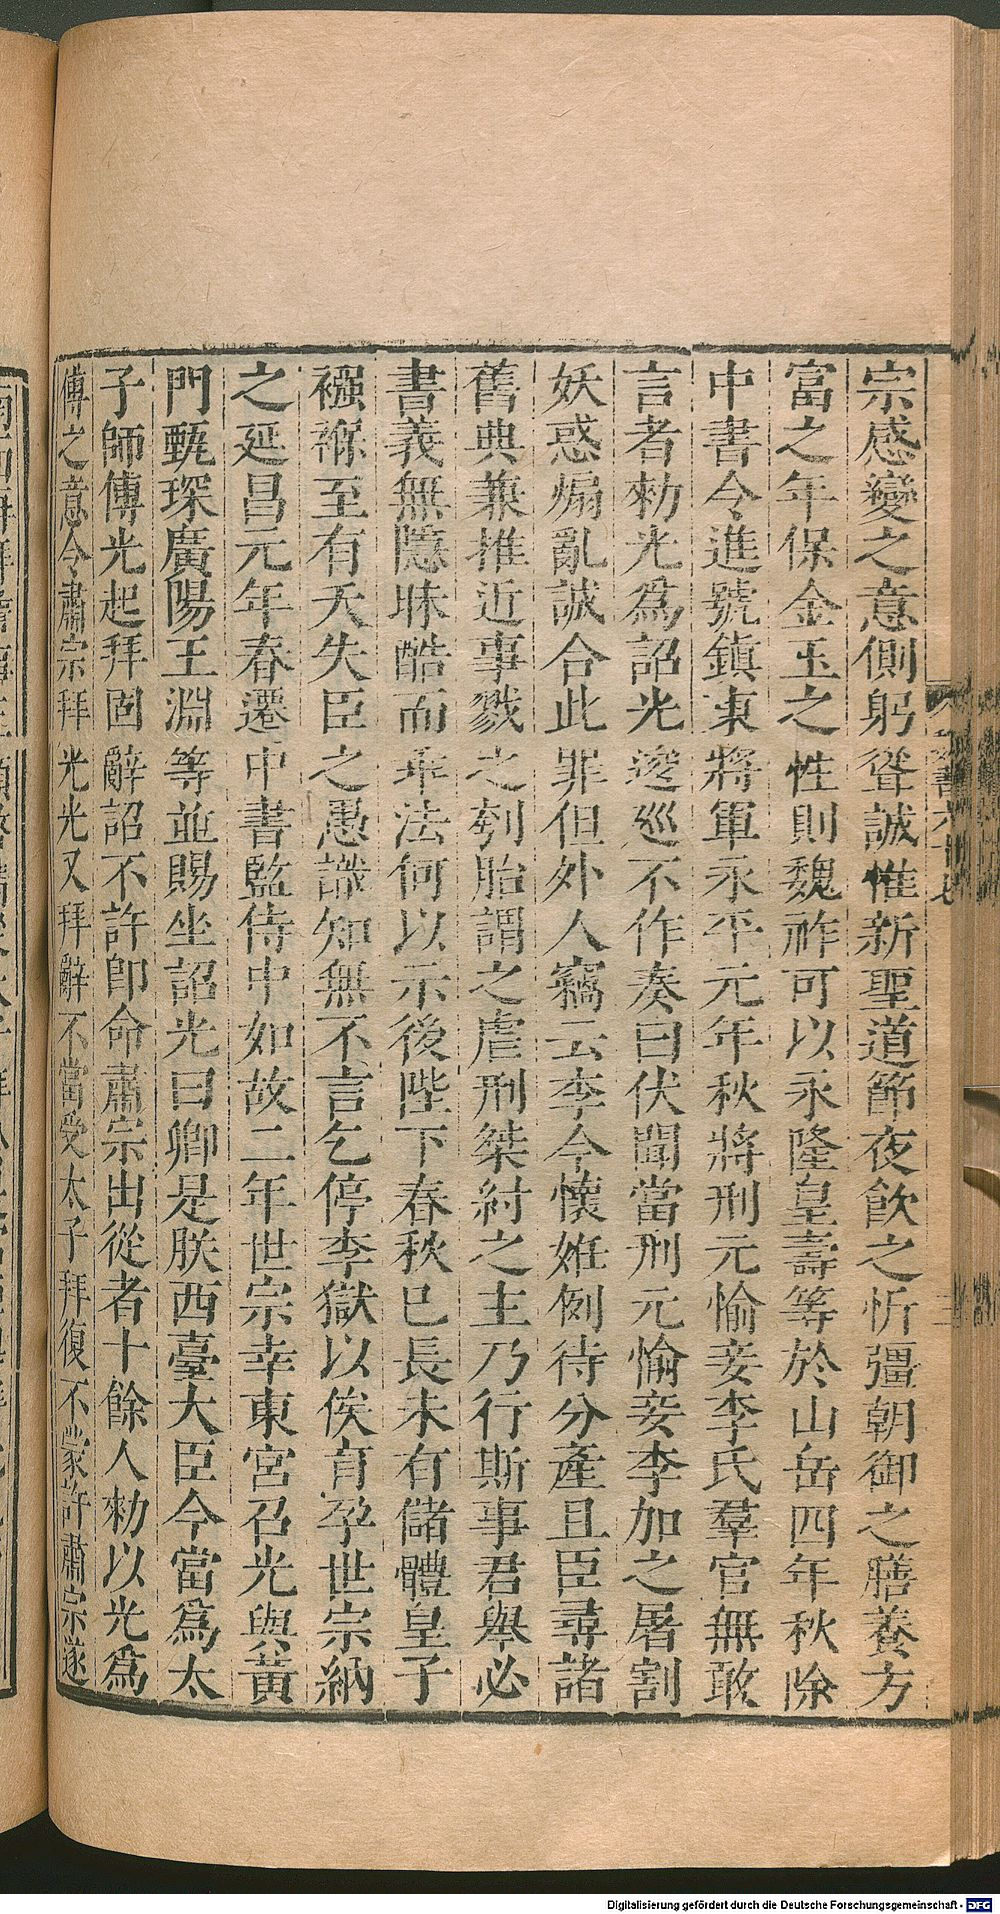 宗感變之意側躬聳誠惟新聖道節夜飲之忻彊朝御之膳養方
富之年保金玉之性則魏祚可以永隆皇壽等於山岳四年秋除
中書令進號鎮東將軍永平元年秋將刑元愉妾李氏羣官無敢
言者勑光為詔光逡巡不作奏曰伏聞當刑元愉妾李加之屠割
妖惑煽亂誠合此罪但外人竊云李今懷姙例待分產且臣尋諸
舊典兼推近事戮之刳胎謂之虐刑桀紂之主乃行斯事君舉必
書義無隱昧酷而乖法何以示後陛下春秋已長未有儲體皇子
襁褓至有夭失臣之愚識知無不言乞停李獄以俟育孕世宗納
之延昌元年春遷中書監侍中如故二年世宗幸東宮召光與黃
門甄琛廣陽王淵等並賜坐詔光曰卿是朕西臺大臣今當為太
子師傅光起拜固辭詔不許即命肅宗出從者十餘人勑以光為
傅之意令肅宗拜光光又拜辭不當受太子拜復不蒙許肅宗遂
Digitalisierung gefördert durch die Deutsche Forschungsgemeinschaft - DFG